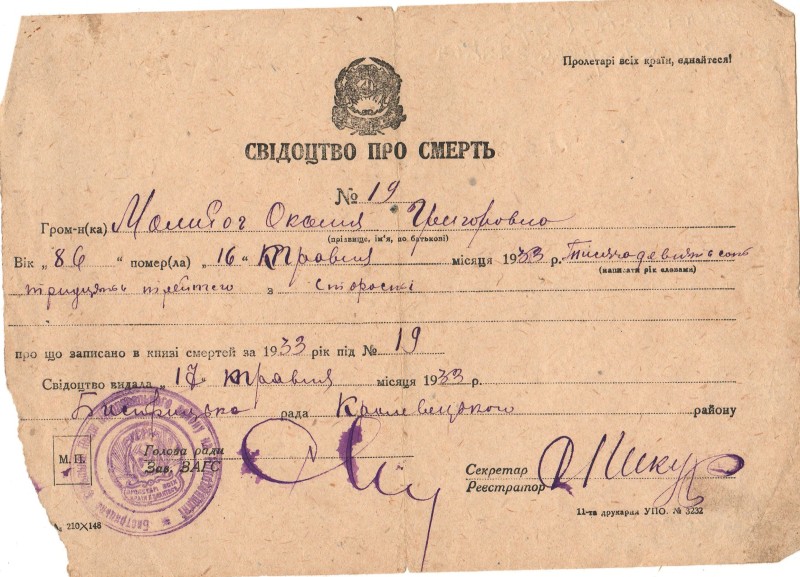 Пролетарі всіх країн, єднайтеся!
СВІДОЦТВО ПРО СМЕРТЬ
№ 19
Гром-н(ка) Григоровно
(прізвище, ім'я, по батькові)
Вік „ 86 “ помер(ла) „ 16 “ травня місяця 1933 р. тисяча девять сот
(написати рік словами)
тридцять третього з старости
про що записано в книзі смертей за 1933 рік під № 19
Свідоцтво видала „ 17 травня місяця 1933 р.
Бистрицька рада Кролевецького району
М. П.
Голова ради
Зав. ЗАГС
Секретар
Реєстратор
210X148
11-та друкарня УПО. № 3232